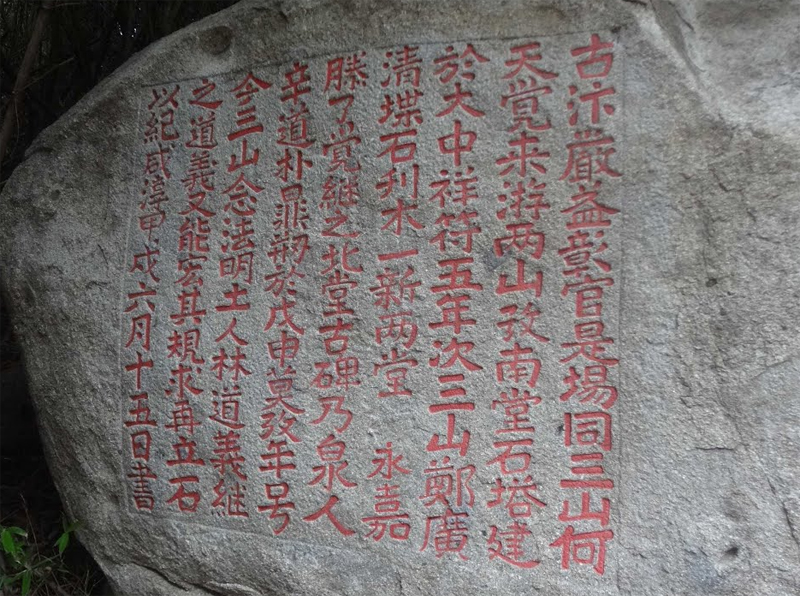 古汴嚴益彰官是場同三山何
天覺来游两山攷南堂石塔建
於大中祥符五年次三山鄭廣
清堞石刋木一新两堂 永嘉
滕了覺継之北堂古碑乃泉人
辛道朴鼎剏於戊申莫攷年号
今三山念法明土人林道義継
之道義又能宏其規求再立石
以紀咸淳甲戌六月十五日書